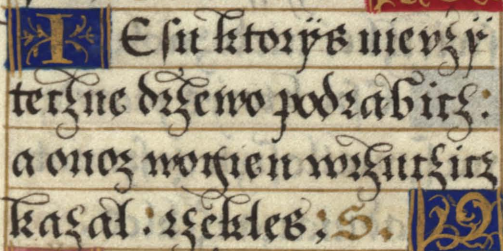 IEsu ktorÿs nievzÿ
teczne drzewo podrabicz:
a onoz wogien wrzuczicz
kazal: rzekles: S. N